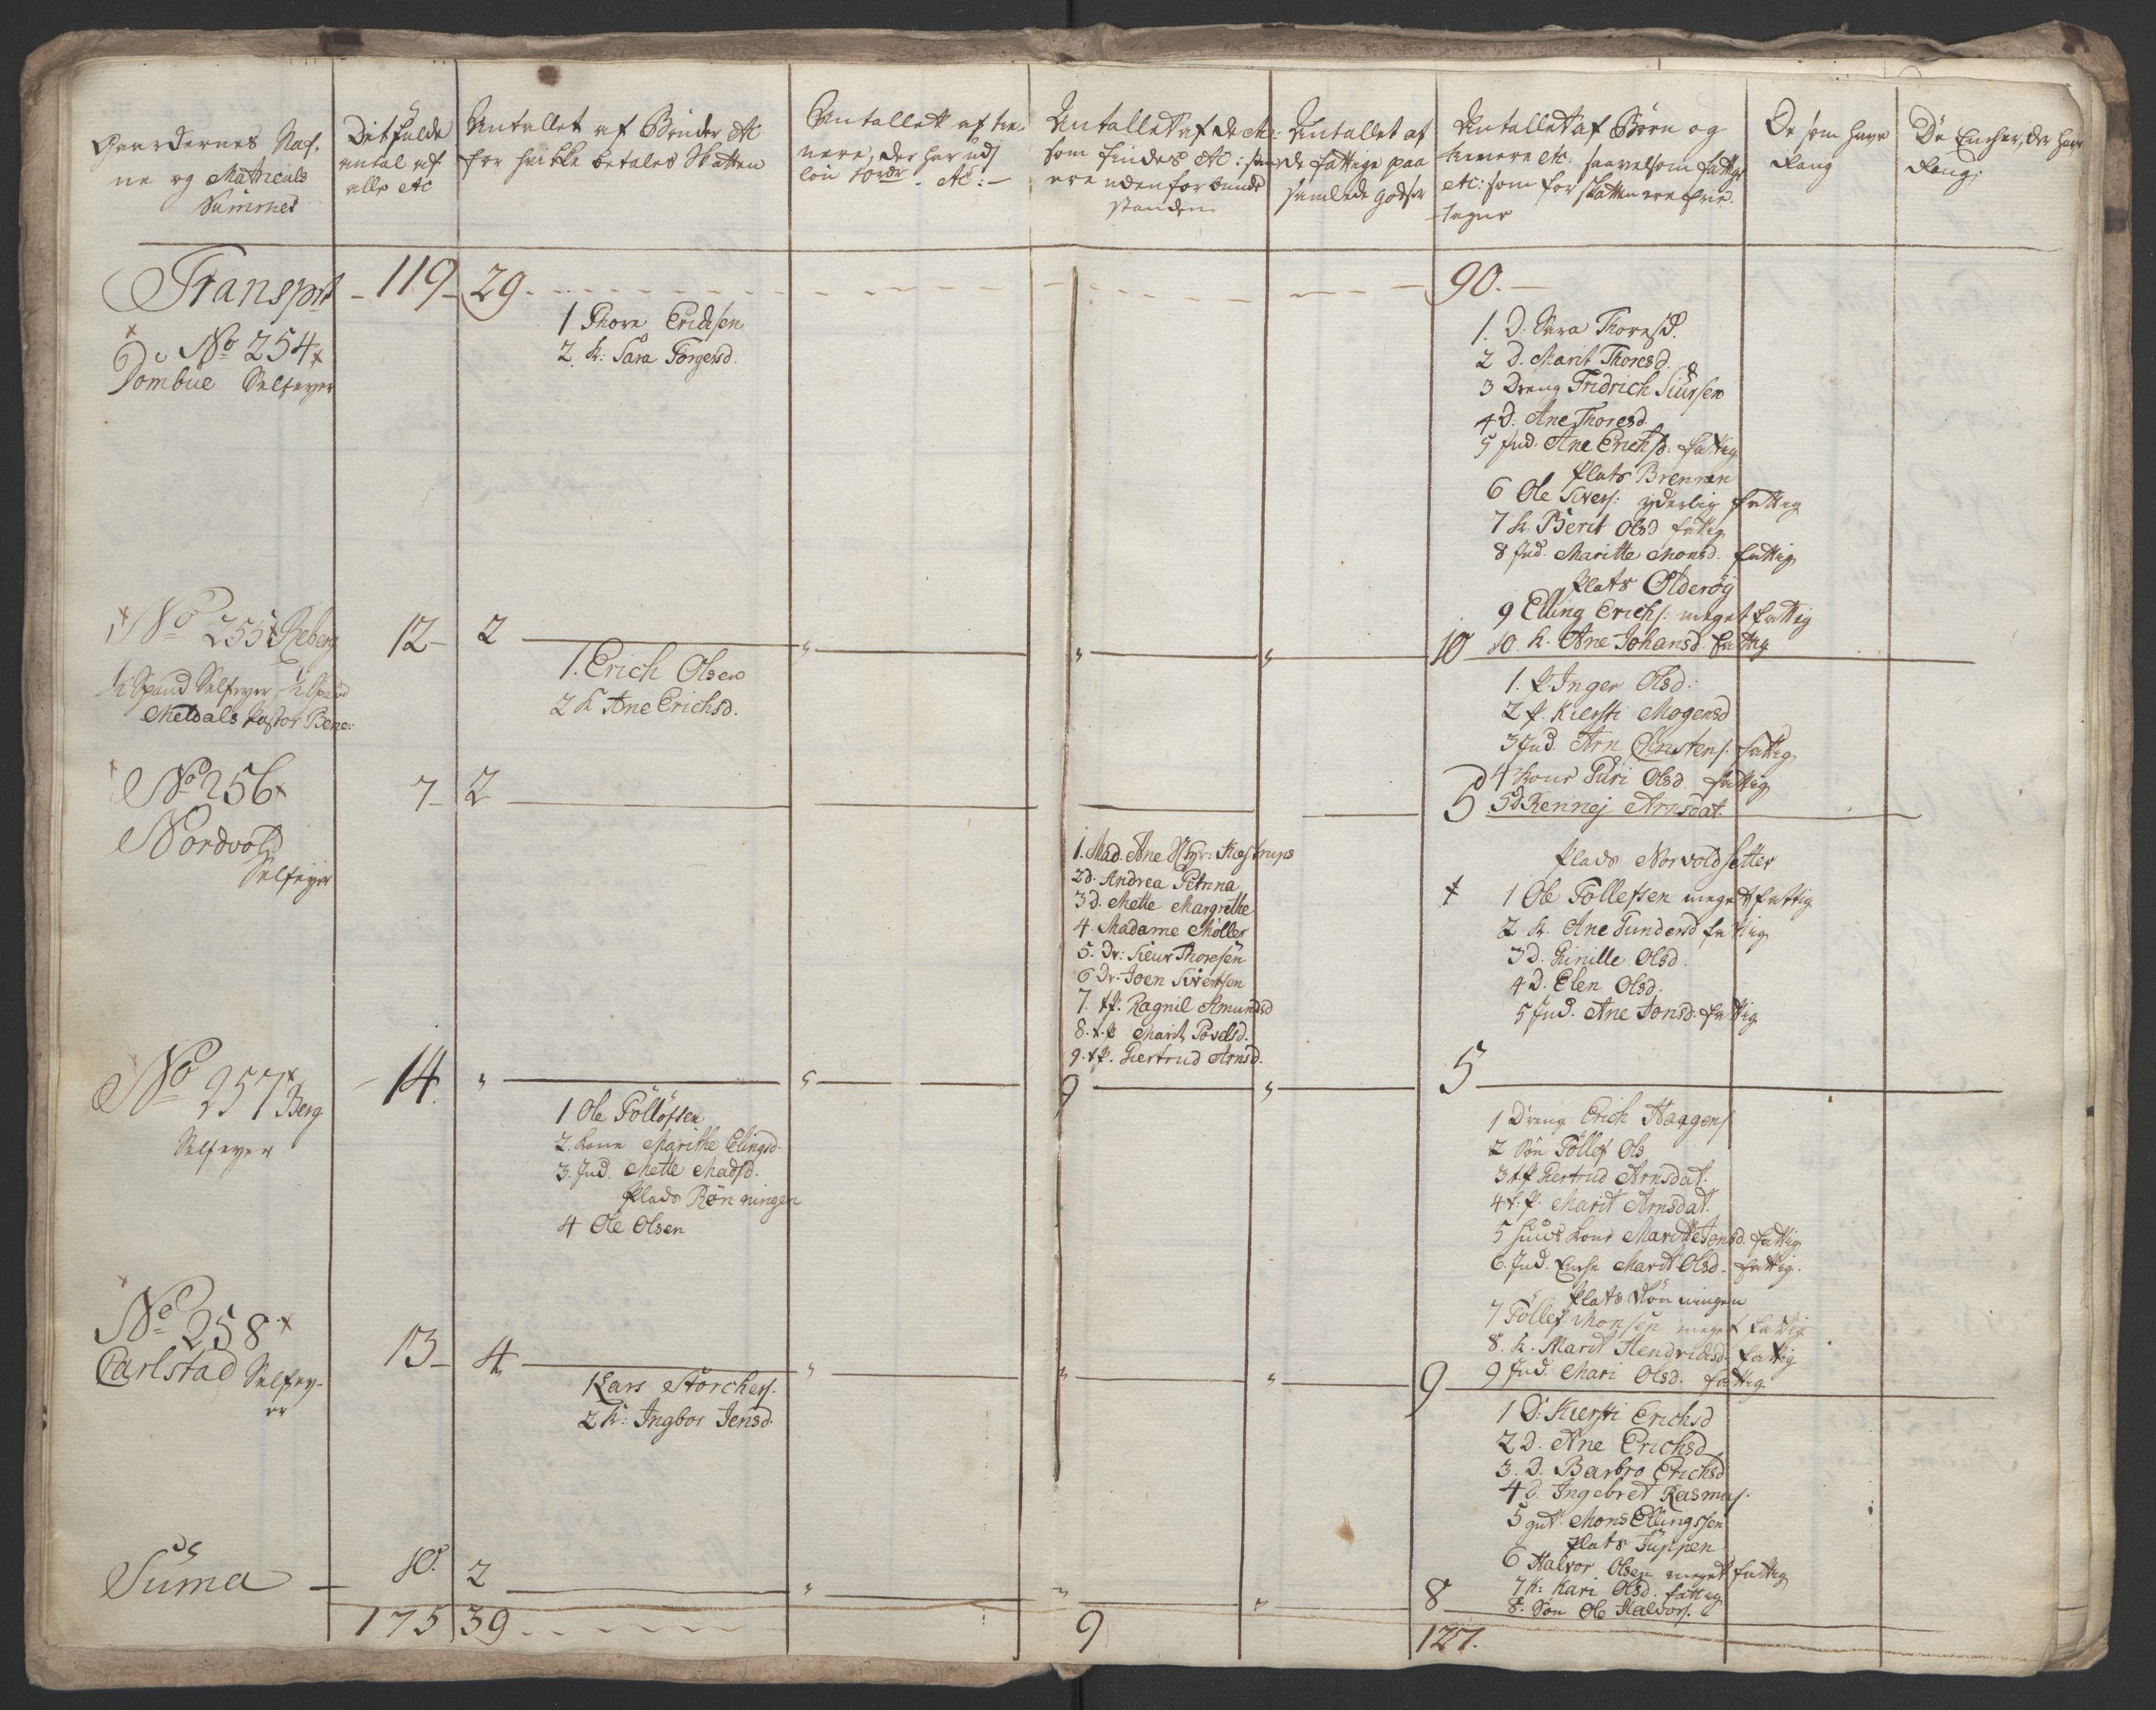 Gaardernes Naf-
ne og Matriculs
Nummer
Det fulde
antal af
alle etc
Antallet af Bønder etc
for hvilke betales Skatten
Antallet af tie-
nere, der har ud
løn etc:
Antallet af de etc:
som findes etc:
ere uden for bonde
standen
Antallet af
de fattige paa
samlede godser
Antallet af Børn og
etc: saavelsom fattige
etc: som for skatten ere frie.
De som have
Rang
De Encher, der have
Rang
Transpt - 119 - 29 90.
No 254
Dombue Selfeyer
1 Thore Erichsen
2 K: Sara Torgersd.
1. D. Sara Thoresd.
2 D. Marit Thoresd.
3 Dreng Fridrich Siursen
4 D: Ane Thoresd.
5 Ind. Ane Erichsd: fattig
Plats Brennen
6 Ole Sivers: yderlig fattig
7 K. Berit Olsd fattig
8 Ind. Maritte Monsd. fattig
Plats Olderøy
9 Elling Erichs: meget fattig
10 K. Ane Johansd. fattig
12 - 2 " " " 10
No 255 Reberg
½ Spand Selfeyer, ½ Spand
Meldals Pastor Bene:
1. Erich Olsen
2 K Ane Erichsd.
1. P. Inger Olsd:
2 P. Kiersti Mogensd
3 Ind. Arn Christens. fattig
4 Kone Guri Olsd fattig
5 D Rennej Arnsdat.
7 - 2 5
No 256
Nordvold
Selfeyer
1. Mad. Ane Kiestrups
2 D. Andrea Petrina
3 D. Mette Margrethe
4. Madame Møller
5. Dr: Sieur Thoresen
6 Dr. Joen Siversen
7. t.P. Ragnil Amundsd
8. t.P. Marit Povelsd.
9. t.P. Giertrud Arnsd.
Plads Norvoldsetter
1 Ole Tollefsen meget fattig
2 K. Ane Gundersd fattig
3 D. Gunille Olsd.
4 D. Elen Olsd.
5 Ind. Ane Jonsd. fattig
14. " " 9 " 5
No 257 Berg
Selfeyer
1 Ole Tölløfsen
2. Kone Marithe Elingsd.
3. Ind. Mette Madsd.
Plads Rønningen
4 Ole Olsen
1 Dreng Erich Haagens
2 Søn Töllef Ols
3 t.P. Giertrud Arnsdat.
4 t.P. Marit Arnsdat.
5 Huus Kone Maritte Jonsd. fattig
6. Ind. Enche Marit Olsd. fattig.
Plats Rønningen
7 Töllef Monsen meget fattig
8. K. Marit Hendrichsd. fattig
9 Ind. Mari Olsd. fattig
13 - 4 " " " 9
No 258
Carlstad Selfey-
er
1 Lars Storchers.
2 K: Ingbor Jensd.
1 D. Kiersti Erichsd
2 D. Ane Erichsd
3. D. Barbro Erichsd
4 D. Ingebret Rasmus.
5 gut. Mons Ellingssen
Plats Tuppen
6 Halvor Olsen meget fattig
7 K: Kari Olsd. fattig
8. Søn Ole Halvors.
10. 2 " " " 8
Suma - 175 39 9 127.